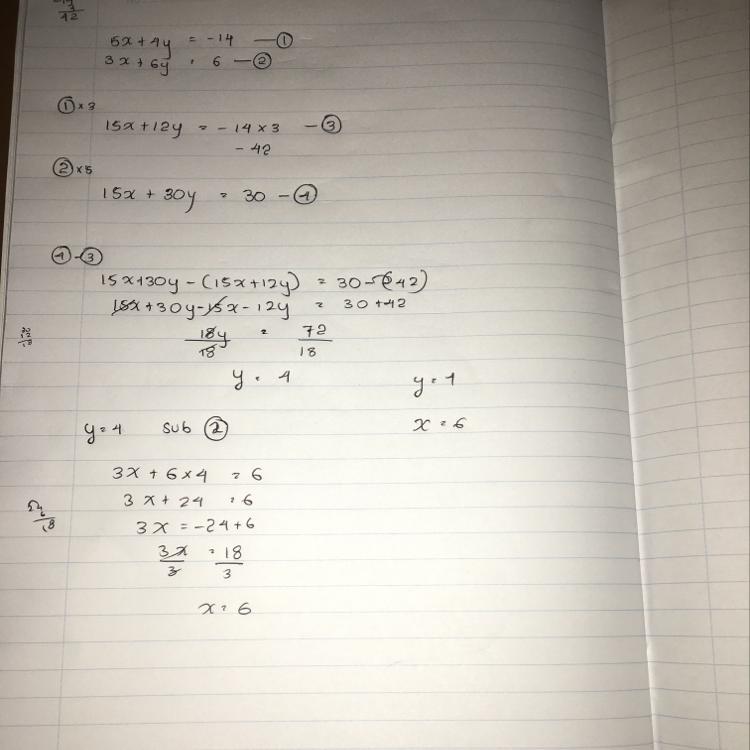 3
42
5x + 4y = -14 — ①
3x + 6y = 6 — ②
① × 3
15x + 12y = - 14 × 3 — ③
- 42
② × 5
15x + 30y = 30 — ④
④ - ③
15x + 30y - (15x + 12y) = 30 - (-42)
15x + 30y - 15x - 12y = 30 + 42
18y = 72
18 18
y = 4 y = 4
y = 4 sub ② x = 6
3x + 6 × 4 = 6
3x + 24 = 6
3x = -24 + 6
3x = 18
3 3
x = 6